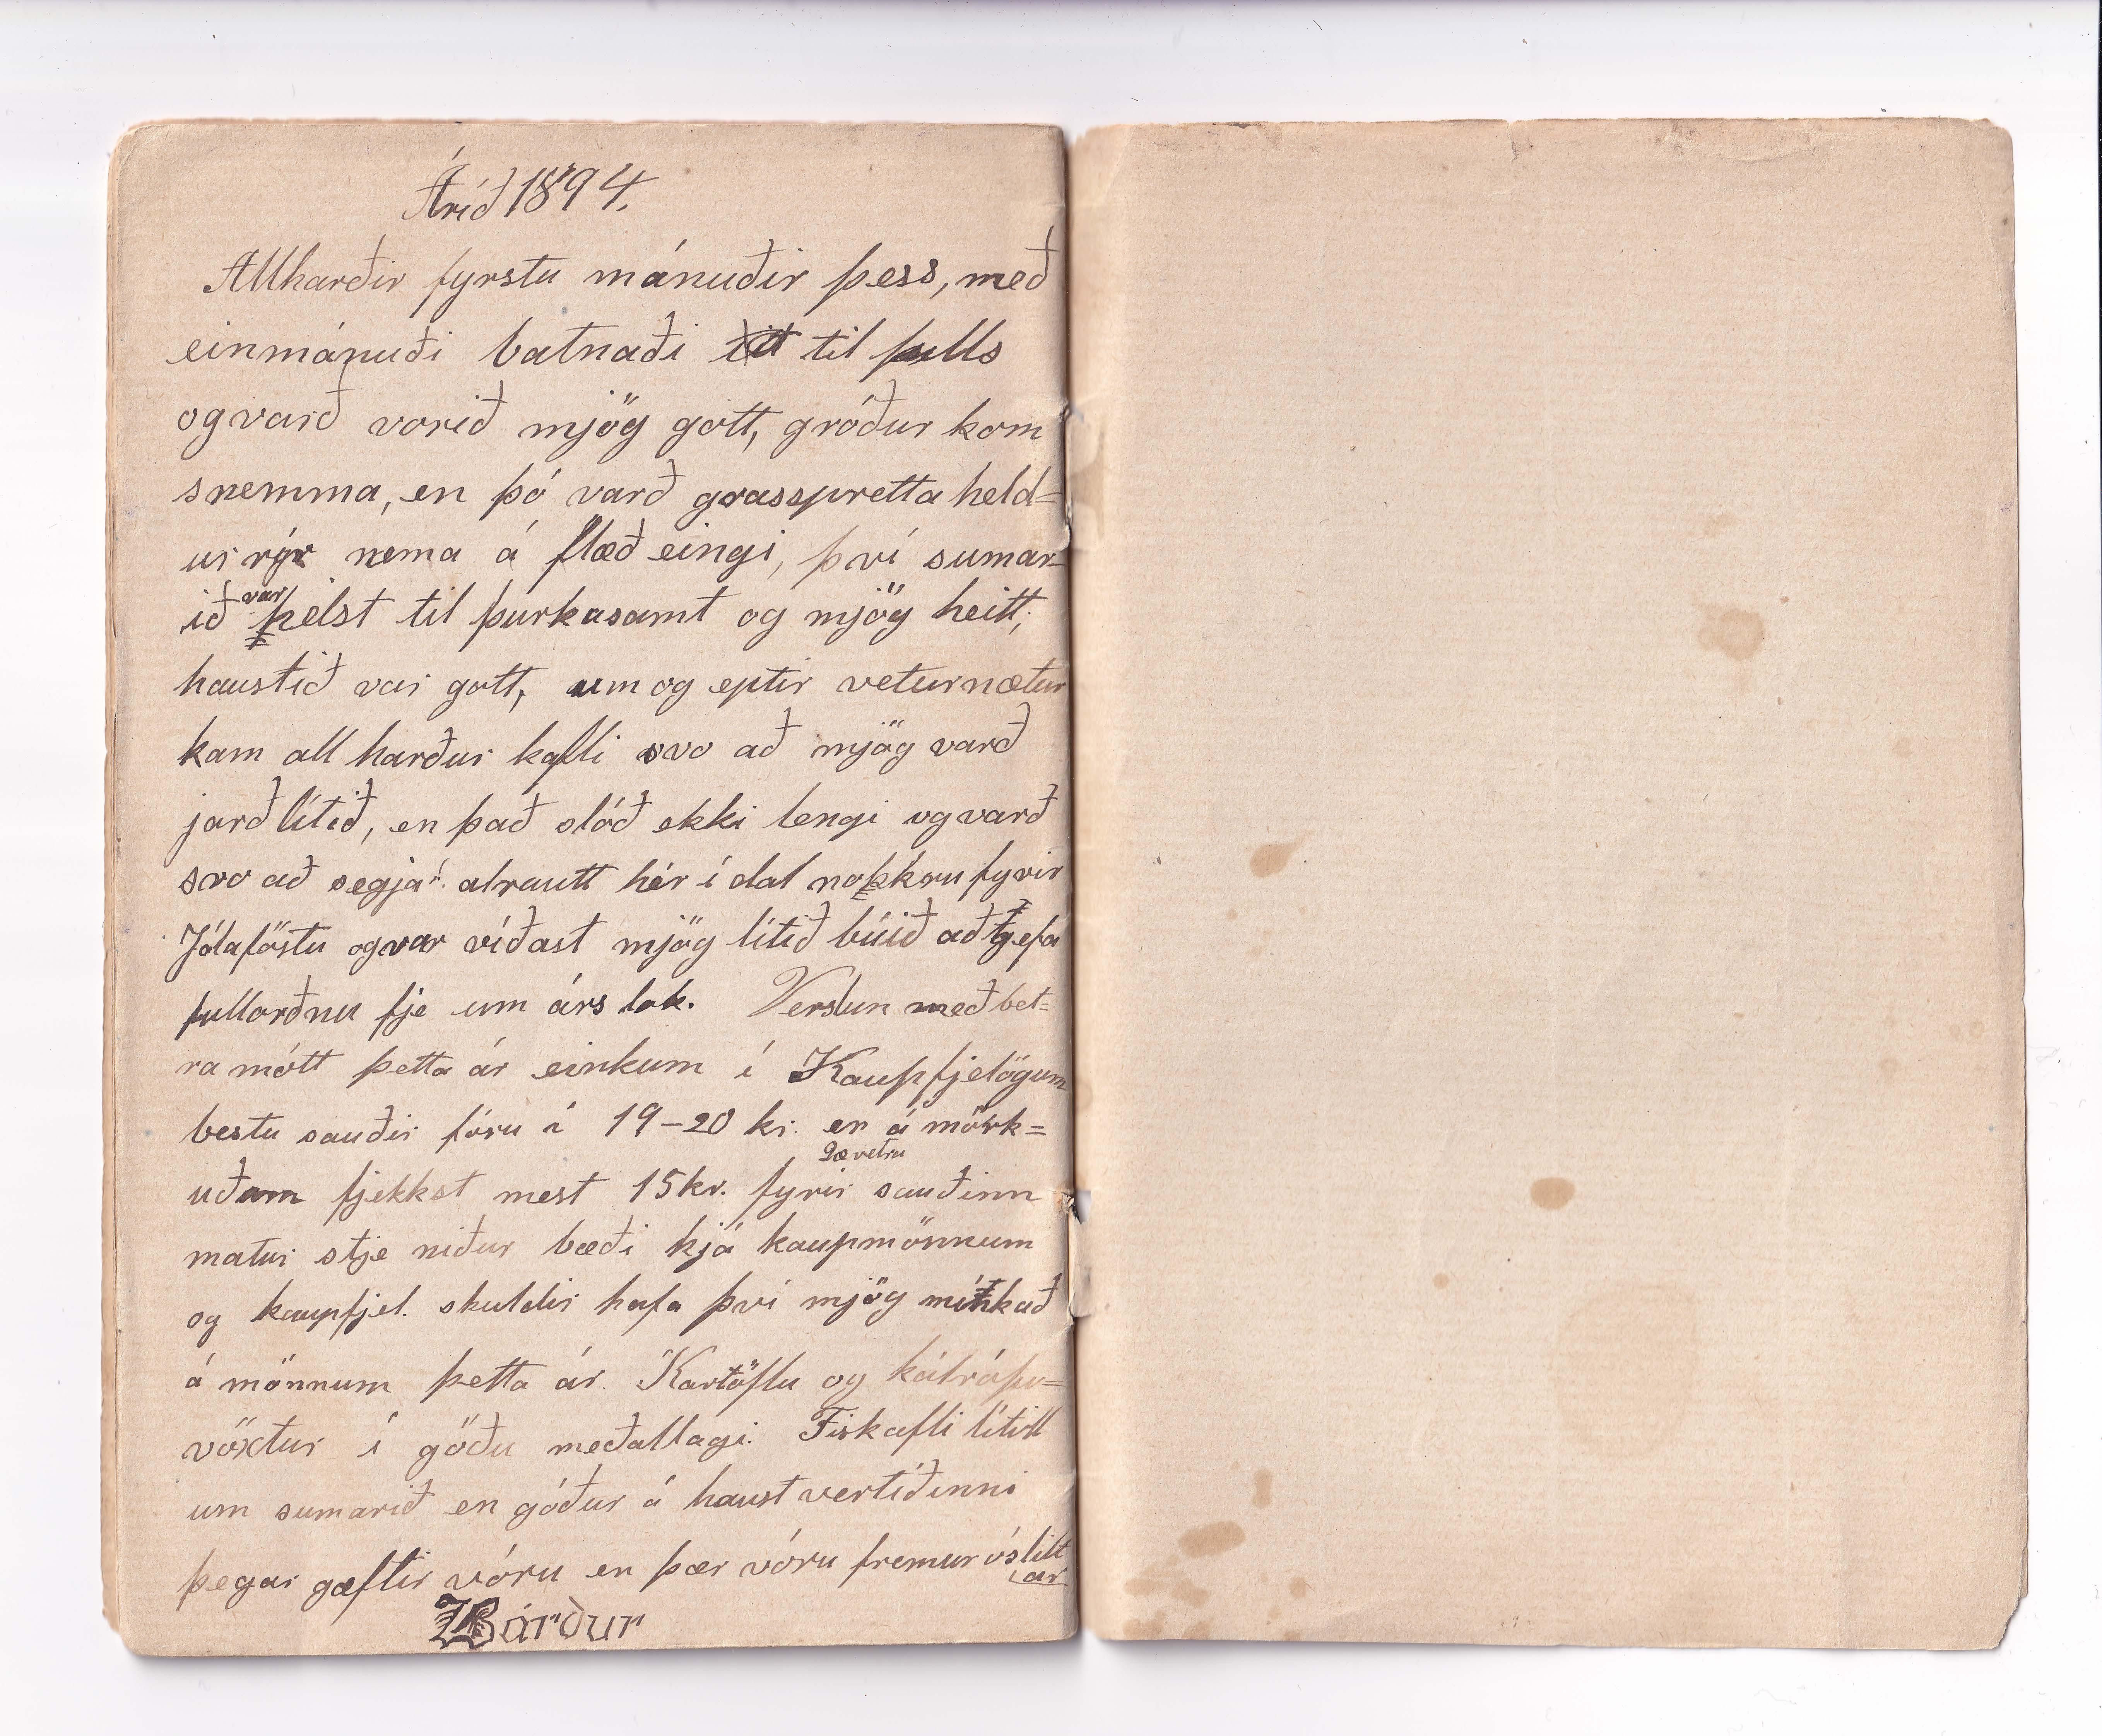 Árið 1894.
Allharðir fyrstu mánuðir þess, með
einmánuði batnaði til fulls
og varð vorið mjög gott, gróður kom
snemma, en þó varð grasspretta held=
ur rýr nema á flæðeingi, því sumar=
ið var helst til þurkasamt og mjög heitt,
haustið var gott, um og eptir veturnætur
kam all harður kafli svo að mjög varð
jarðlítið, en það stóð ekki lengi og varð
svo að segja alrautt hér í dal nokkru fyrir
Jólaföstu og var víðast mjög lítið búið að gefa
fullorðnu fje um árs lok. Verslun með bet=
ra mótt þetta ár einkum í Kaupfjelögum
bestu sauðir fóru í 19-20 kr. en á mörk=
uðum fjekkst mest 15 kr. fyrir 2ævetru sauðinn
matur stje niður bæði hjá kaupmönnum
og kaupfjel. skuldir hafa því mjög minkað
á mönnum þetta ár. Kartöflu og kálrápu=
vöxtur í góðu meðallagi. Fiskafli lítill
um sumarið en góður á haustvertíðinni
þegar gæftir vóru en þær vóru fremur óslitt
ar
Bárður